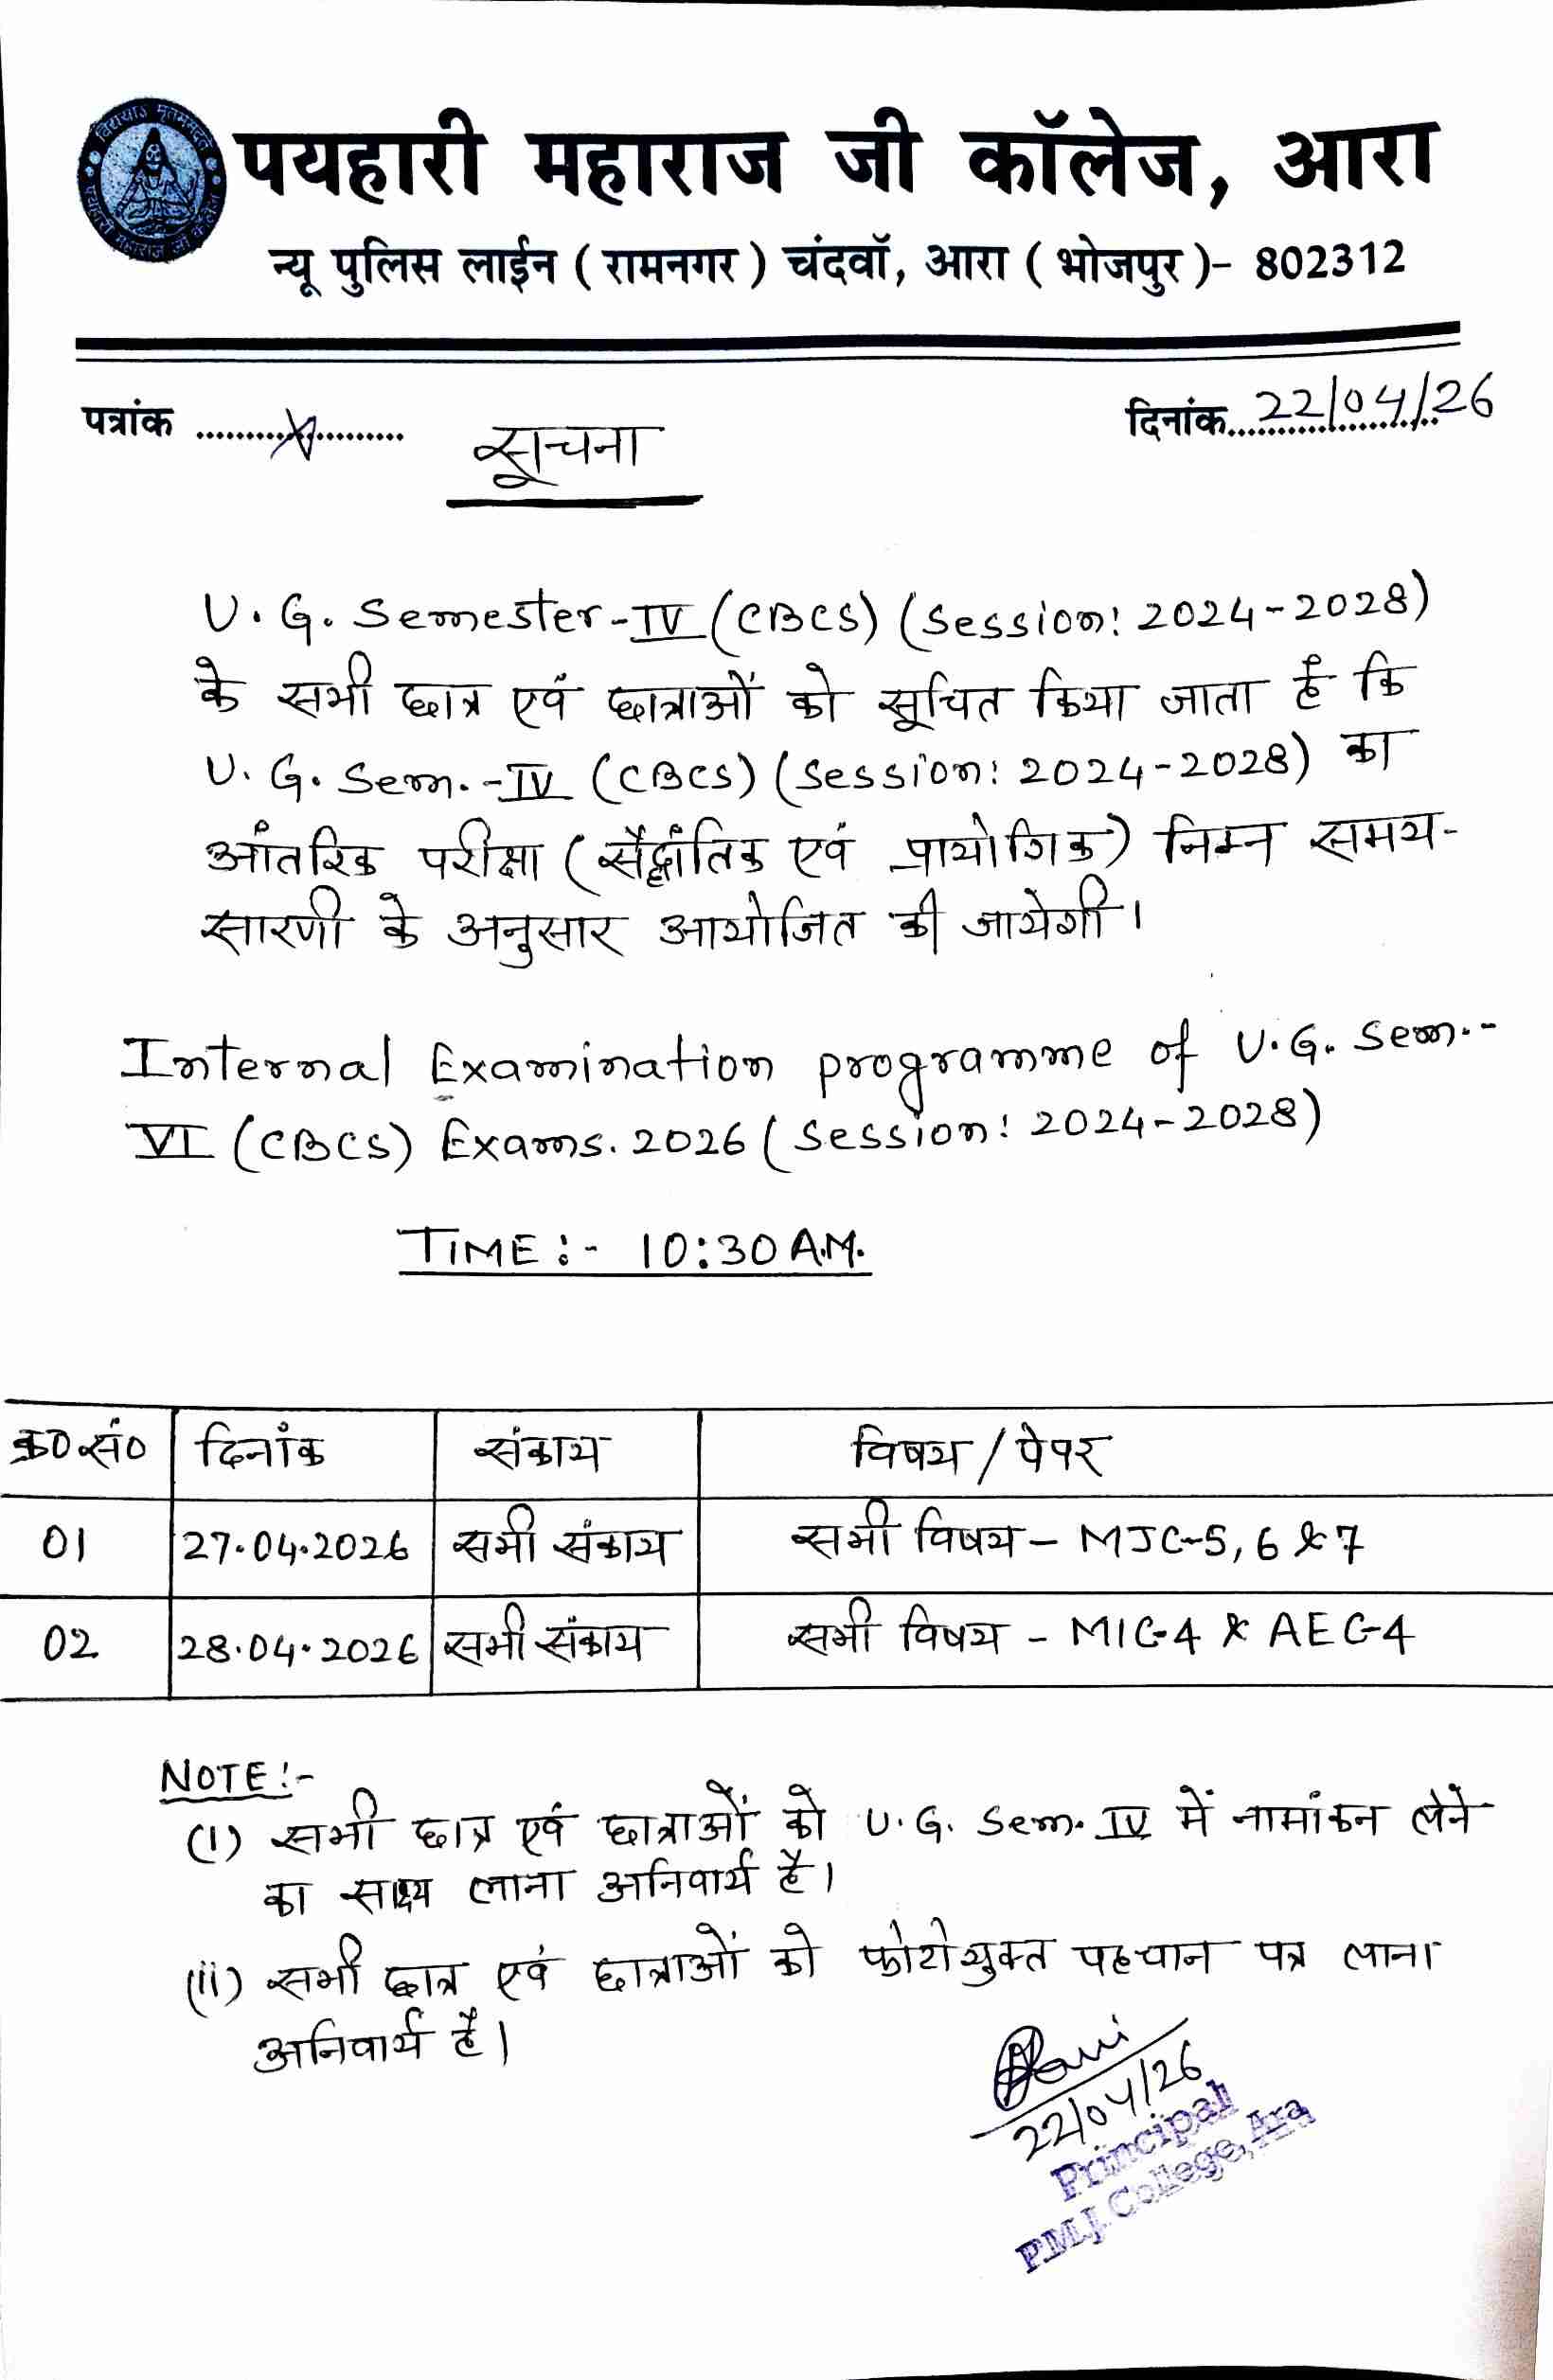 पयहारी महाराज जी कॉलेज, आरा
न्यू पुलिस लाईन ( रामनगर ) चंदवाॅ, आरा ( भोजपुर )- 802312
पत्रांक ....................
दिनांक 22/04/26
सूचना
U.G. Semester-IV (CBCS) (Session: 2024-2028)
के सभी छात्र एवं छात्राओं को सूचित किया जाता है कि
U.G. Sem.-IV (CBCS) (Session: 2024-2028) का
आंतरिक परीक्षा (सैद्धांतिक एवं प्रायोगिक) निम्न समय-
सारणी के अनुसार आयोजित की जायेगी।
Internal Examination programme of U.G. Sem.-
VI (CBCS) Exams. 2026 (Session: 2024-2028)
TIME :- 10:30 A.M.
क्र०सं० दिनांक संकाय विषय / पेपर
01 27.04.2026 सभी संकाय सभी विषय - MJC-5, 6 & 7
02 28.04.2026 सभी संकाय सभी विषय - MIC-4 & AEC-4
NOTE:-
(i) सभी छात्र एवं छात्राओं को U.G. Sem. IV में नामांकन लेने
का साक्ष्य लाना अनिवार्य है।
(ii) सभी छात्र एवं छात्राओं को फोटोयुक्त पहचान पत्र लाना
अनिवार्य है।
22/04/26
Principal
P.M.J. College, Ara